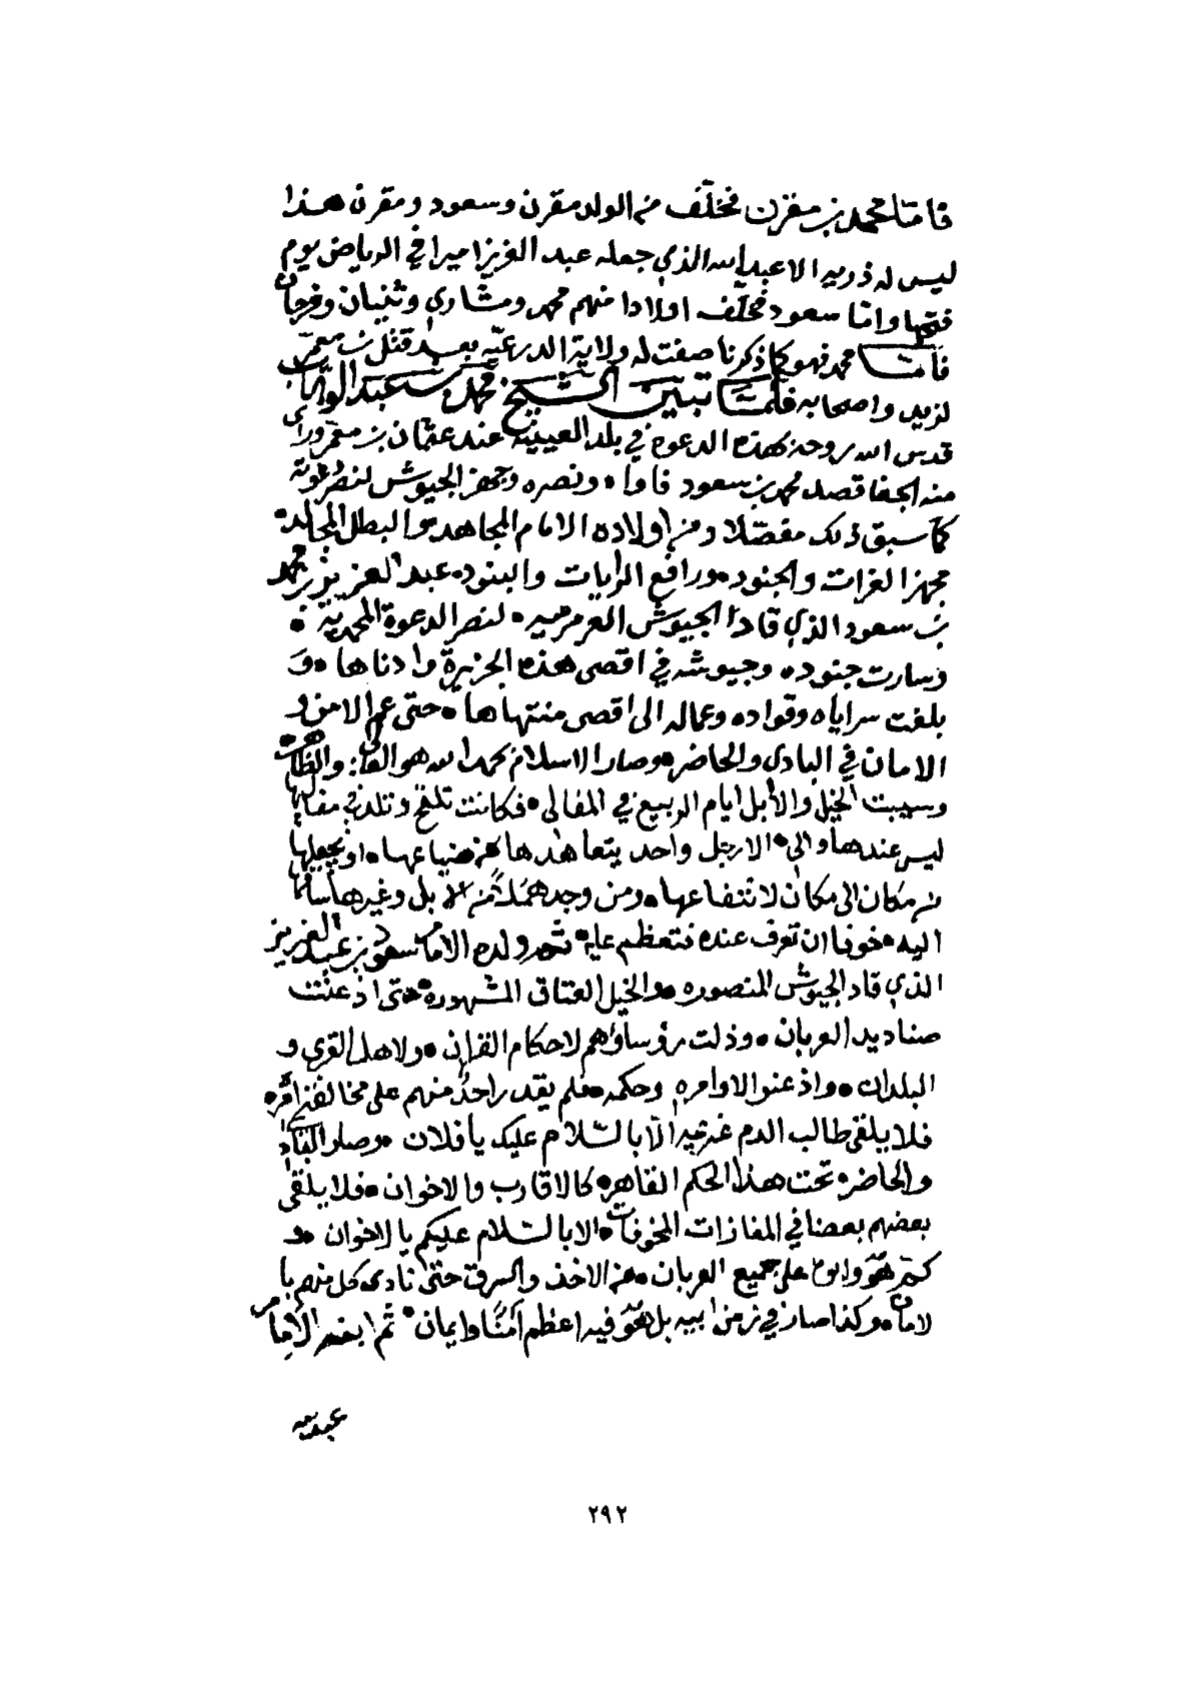 فامّا محمد بن مقرن فخلّف من الولد مقرن وسعود ومقرن هذا
ليس له ذريه الا عبد الله الذي جعله عبد العزيز اميرا في الرياض يوم
فتحها وامّا سعود فخلّف اولادا منهم محمد ومشاري وثنيان وفرحان
فأمّا محمد فهو كما ذكرنا صفت له ولاية الدرعيّه بعد قتل بن معمّر
لزيد واصحابه فلمّا تبيّن الشيخ محمد بن عبد الوهاب
قدس الله روحه بهذه الدعوة في بلد العيينة عند عثمان بن معمّر وراى
منه الجفا قصد محمد بن سعود فاواه ونصره وجهز الجيوش لنصر
كما سبق ذلك مفصّلا ومن اولاده الامام المجاهد والبطل المجالد
مجهز الغزات والجنود ورافع الرايات والبنود عبد العزيز بن محمد
بن سعود الذي قاد الجيوش العرمرميه لنصر الدعوة المحمدية
وسارت جنوده وجيوشه في اقصى هذه الجزيرة وادناها و
بلغت سراياه وقواده وعماله الى اقصى منتهاها حتى عم الامن و
الامان في البادى والحاضر وصار الاسلام بحمد الله هو العالي والظاهر
وسيبت الخيل والأبل ايام الربيع في المفالى فكانت تلقح وتلد في مفاليها
ليس عندها والي الا رجل واحد يتعاهدها عن ضياعها او يجعلها
من مكان الى مكان لانتفاعها ومن وجد هملا من الابل وغيرها ساقها
اليه خوفا ان تعرف عنده فتعظم عليه ثم ولده الامام سعود بن عبد العزيز
الذي قاد الجيوش المنصوره والخيل العتاق المشهورة حتى اذعنت
صناديد العربان وذلت رؤساؤهم لاحكام القران ولاهل القرى و
البلدان واذعنو الاوامره وحكمه فلم يقدر احدٌ منهم على مخالفة امره
فلا يلقى طالب الدم غريمه الّا بالسّلام عليك يا فلان وصار الباد
والحاضر تحت هذا الحكم القاهر كالاقارب والاخوان فلا يلقى
بعضهم بعضا في المفازات المخوفات الا بالسّلام عليكم يا الاخوان و
كبّر هوّ وابوه على جميع العربان من الاخذ والسرق حتى نادى كل منهم با
لامان وكذا صار في زمن ابيه بل هوّ فيه اعظم أمنًا وايمان ثم ابنه الامام
عبد الله
٢٩٢